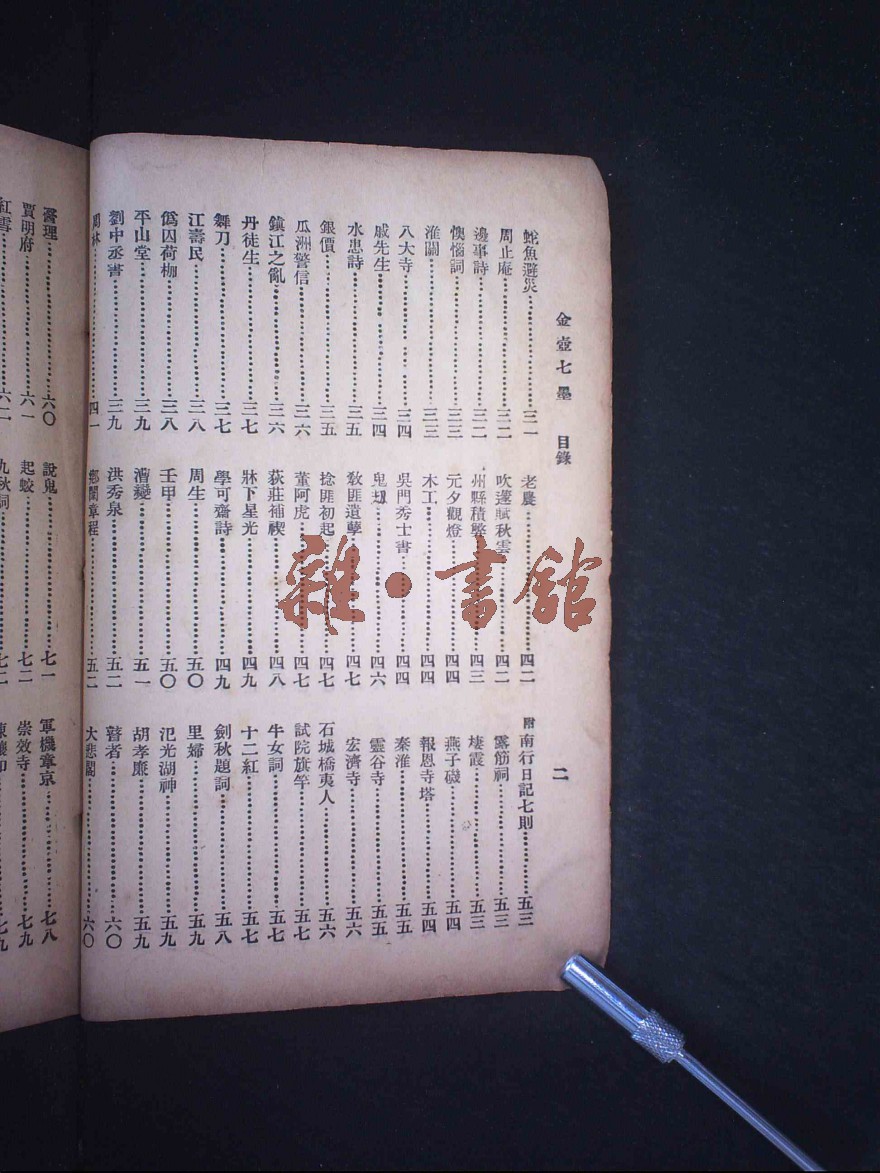 金壺七墨 目錄 二
鮀魚避災 三一
周止庵 三二
邊事詩 三二
懊惱詞 三三
淮關 三三
八大寺 三四
戚先生 三四
水患詩 三五
銀價 三五
瓜洲警信 三六
鎮江之亂 三六
丹徒生 三七
舞刀 三七
江壽民 三八
偽囚荷枷 三八
平山堂 三九
劉中丞書 三九
周林 四一
老農 四二
吹蘧賦秋雲 四二
州縣積弊 四三
元夕觀燈 四四
木工 四四
吳門秀士書 四四
鬼 四六
教匪遺孽 四七
捻匪初起 四七
董阿虎 四七
荻莊補禊 四八
牀下星光 四九
學可齋詩 四九
周生 五〇
壬甲 五〇
漕變 五一
洪秀泉 五二
鄭蘭章程 五二
附南行日記七則 五三
露筋祠 五三
棲霞 五三
燕子磯 五四
報恩寺塔 五四
秦淮 五五
靈谷寺 五五
宏濟寺 五六
石城橋夷人 五六
試院旗竿 五七
牛女詞 五七
十二紅 五七
劍秋題詞 五八
里婦 五九
氾光湖神 五九
胡孝廉 五九
瞽者 六〇
大悲閣 六〇
醫理 六〇
賈明府 六一
紅雪 六二
說鬼 七一
起蛟 七二
九秋詞 七二
軍機章京 七八
崇效寺 七九
七九
雜·書館